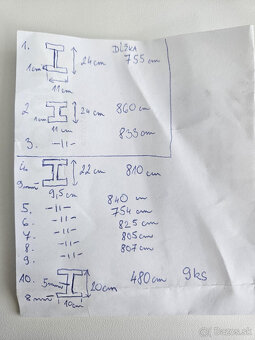 DĹŽKA
1. 24cm 755 cm
1cm
11cm
2. 24cm 860 cm
1cm
11cm
3. -11- 833cm
4. 22cm 810 cm
9mm
9,5cm
5. -11- 840 cm
6. -11- 754 cm
7. -11- 825 cm
8. -11- 805cm
9. -11- 807cm
10. 5mm 20cm 480cm 9ks
8mm 10cm
bazar.sk